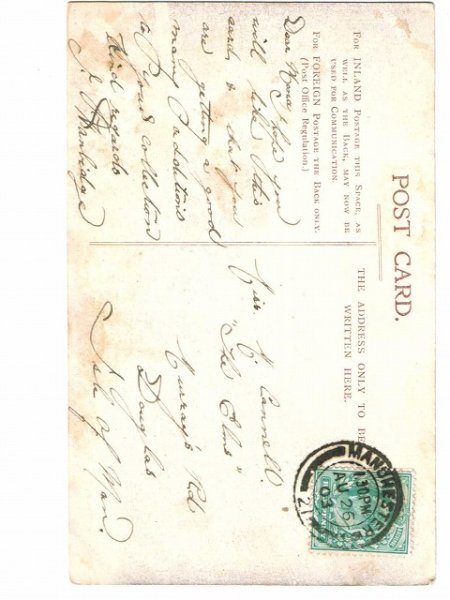 POST CARD.
FOR INLAND POSTAGE THIS SPACE, AS
WELL AS THE BACK, MAY NOW BE
USED FOR COMMUNICATION.
FOR FOREIGN POSTAGE THE BACK ONLY.
(Post Office Regulation.)
THE ADDRESS ONLY TO BE
WRITTEN HERE.
Dear hope you
will like this
card, & that you
are getting a good
many additions
to collection
Kind regards
MANCHESTER
1.30PM
26
03
21
Miss Cannell.
"The Elms"
Murray's Rd
Douglas
I. of Man.